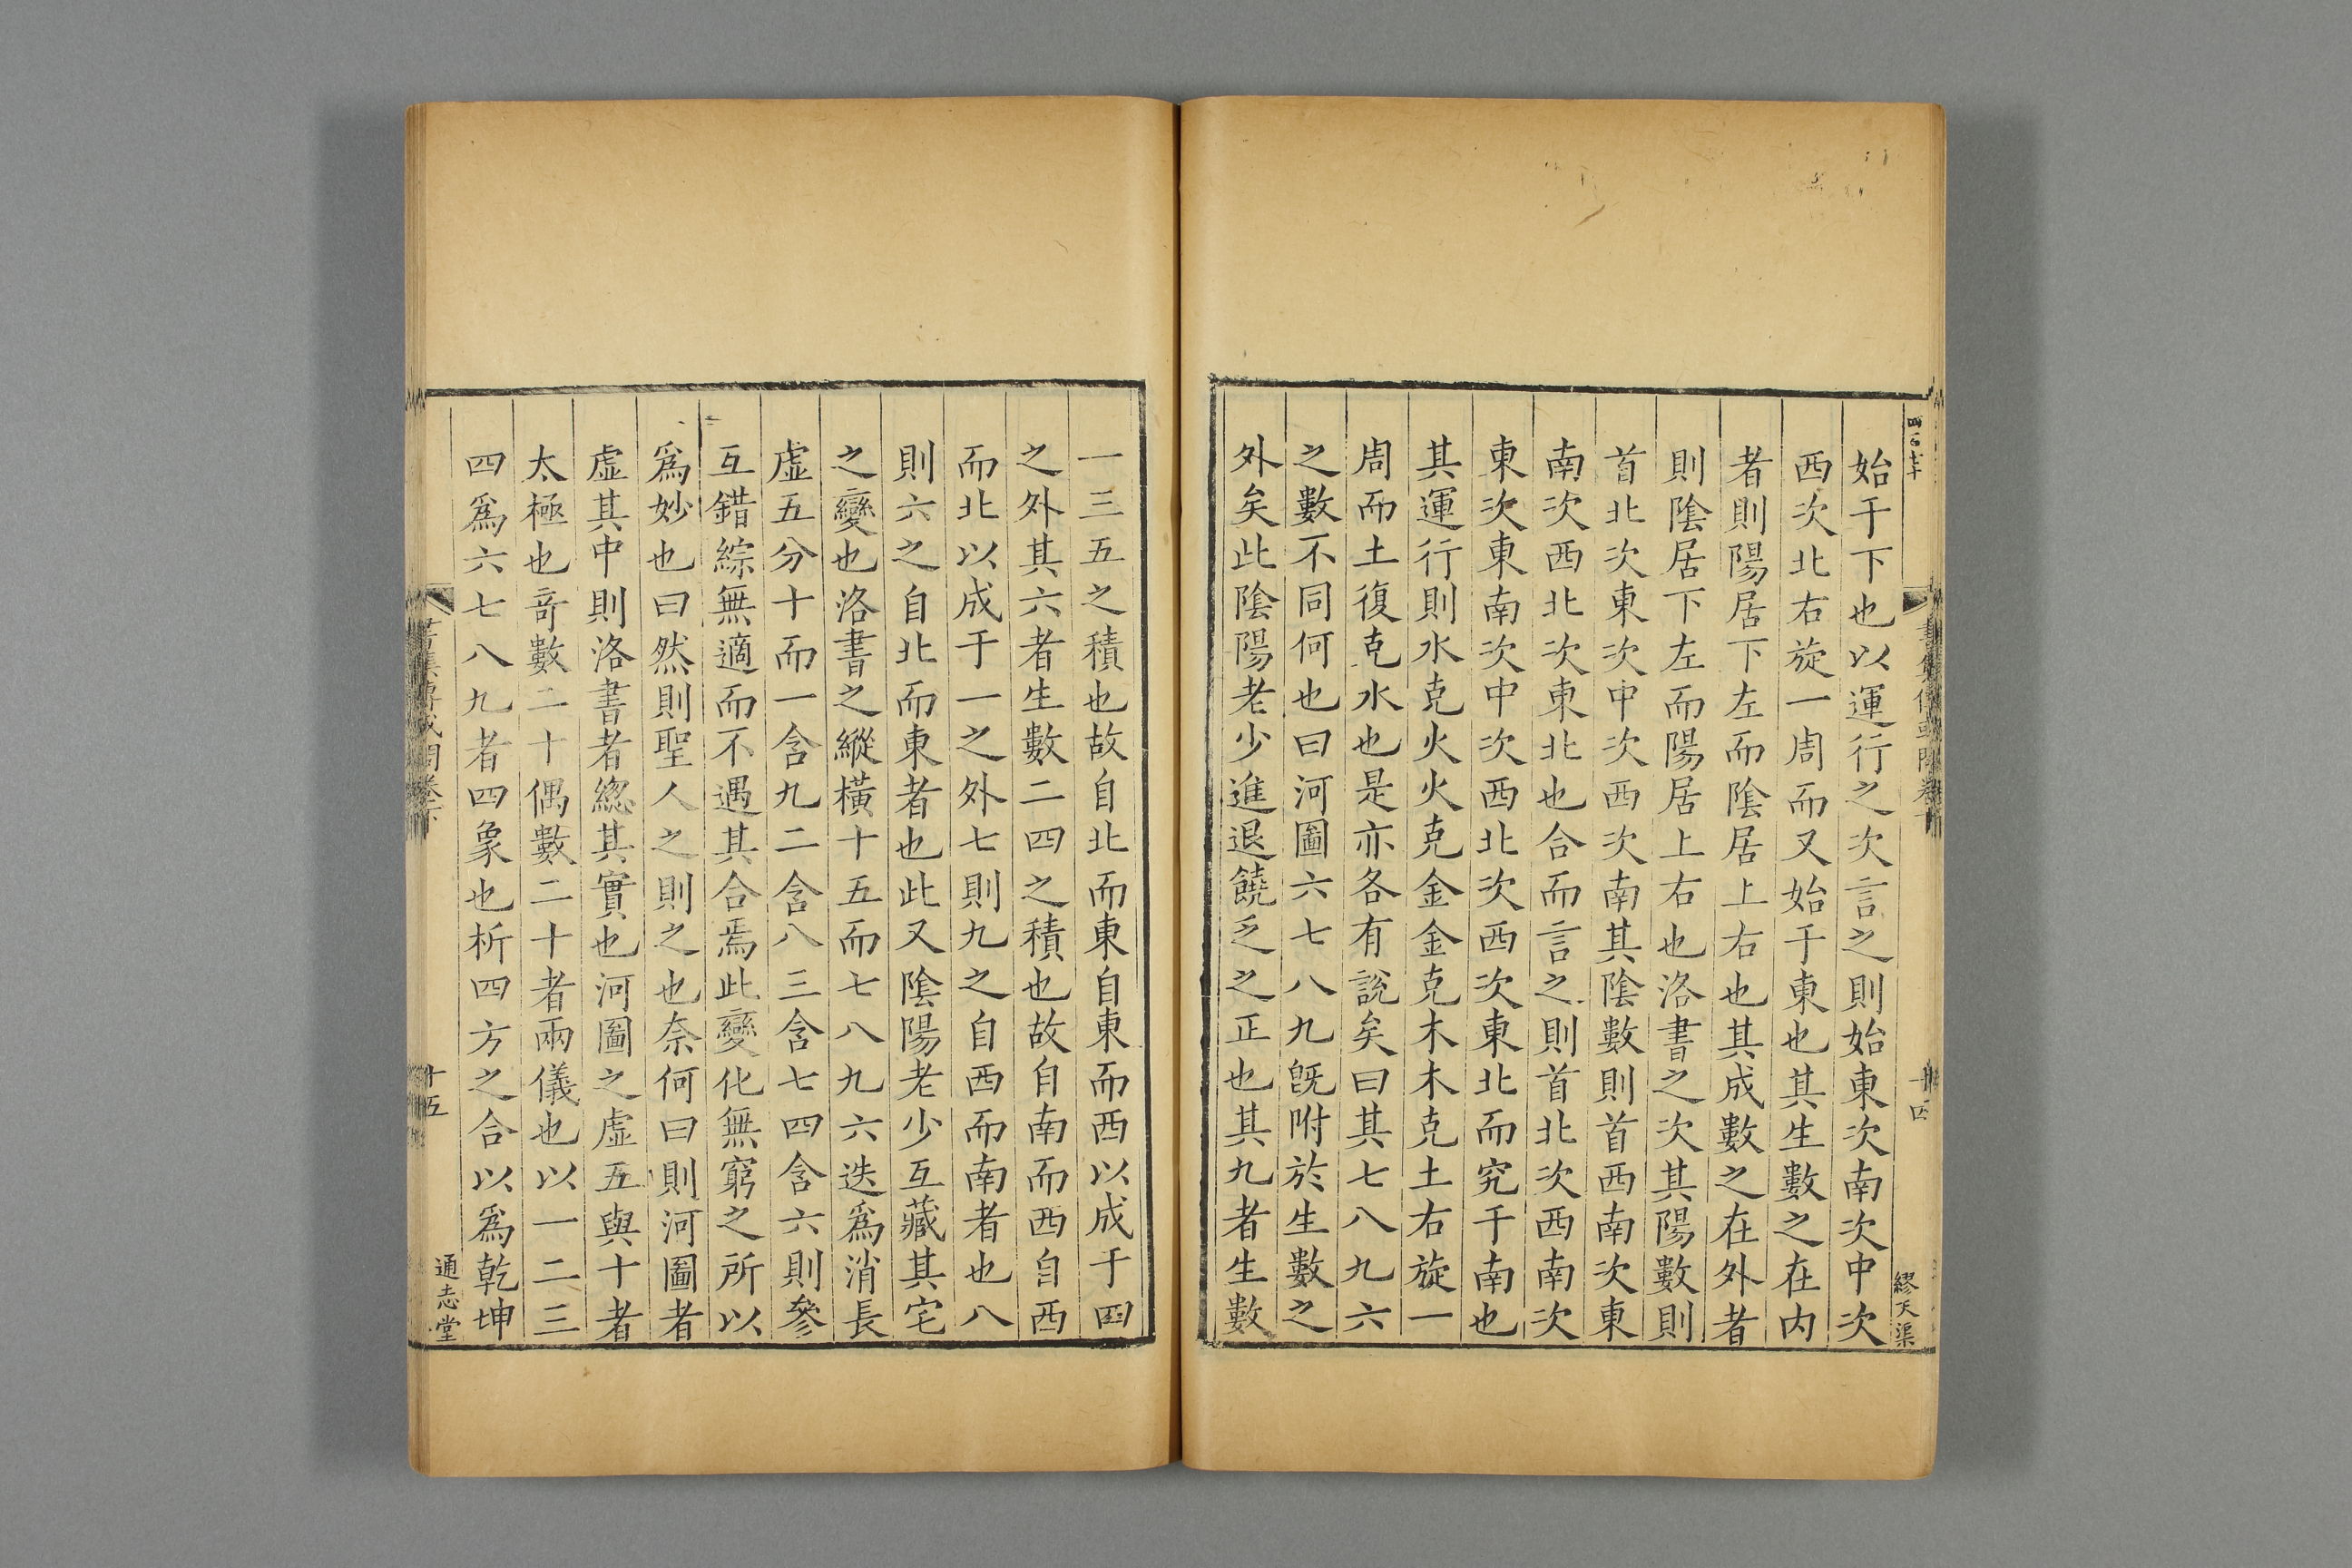 始于下也以運行之次言之則始東次南次中次
西次北右旋一周而又始于東也其生數之在内
者則陽居下左而陰居上右也其成數之在外者
則陰居下左而陽居上右也洛書之次其陽數則
首北次東次中次西次南其陰數則首西南次東
南次西北次東北也合而言之則首北次西南次
東次東南次中次西北次西次東北而究于南也
其運行則水克火火克金金克木木克土右旋一
周而土復克水也是亦各有說矣曰其七八九六
之數不同何也曰河圖六七八九旣附於生數之
外矣此陰陽老少進退饒乏之正也其九者生數
繆天渠
一三五之積也故自北而東自東而西以成于四
之外其六者生數二四之積也故自南而西自西
而北以成于一之外七則九之自西而南者也八
則六之自北而東者也此又陰陽老少互藏其宅
之變也洛書之縱橫十五而七八九六迭爲消長
虛五分十而一含九二含八三含七四含六則參
互錯綜無適而不遇其合焉此變化無窮之所以
爲妙也曰然則聖人之則之也奈何曰則河圖者
虛其中則洛書者總其實也河圖之虛五與十者
太極也奇數二十偶數二十者兩儀也以一二三
四爲六七八九者四象也析四方之合以爲乾坤
十五
通志堂